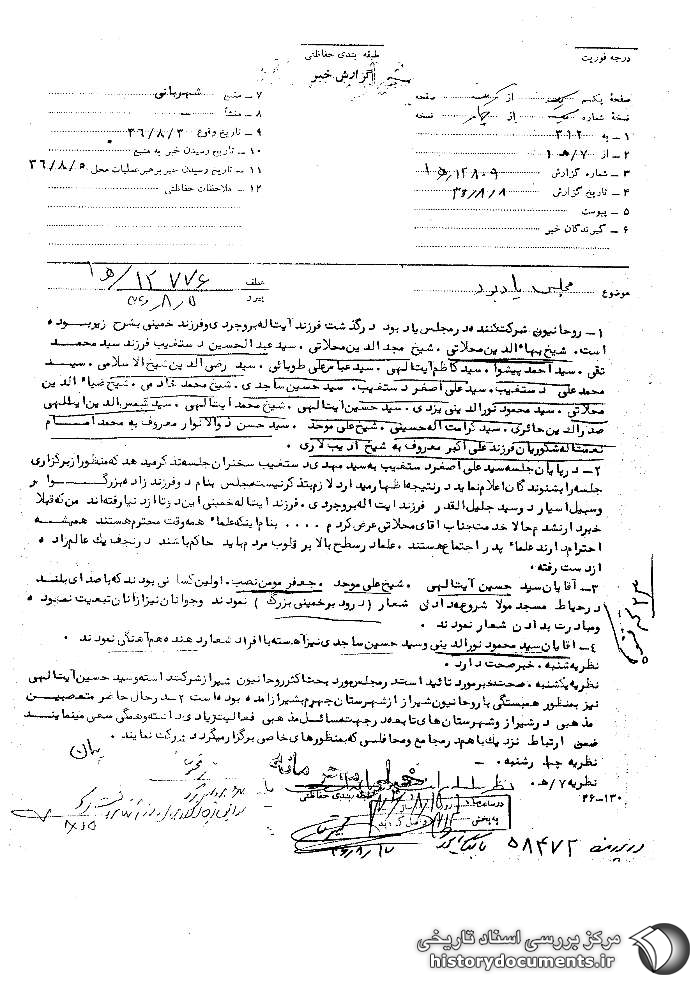 درجه فوریت
طبقه بندی حفاظتی
گزارش خبر
صفحه یکم از یک صفحه
نسخه شماره یک از چهار نسخه
۱ – به ۳۱۲
۲ – از ۷/ه ۱
۳ – شماره گزارش ۱۲۸۰۹/ه ۱
۴ – تاریخ گزارش ۳۶/۸/۸
۵ – پیوست
۶ – گیرندگان خبر
۷ – منبع شهربانی
۸ – منشأ
۹ – تاریخ وقوع ۳۶/۸/۳
۱۰ – تاریخ رسیدن خبر به منبع
۱۱ – تاریخ رسیدن خبر برهبر عملیات محل ۳۶/۸/۵
۱۲ – ملاحظات حفاظتی
موضوع مجلس یادبود
عطف
پیرو ۱۲۷۷۶/ه ۱
۳۶/۸/۵
۱– روحانیون شرکت کننده در مجلس یاد بود درگذشت فرزند آیت اله بروجردی و فرزند خمینی بشرح زیر بوده
است. شیخ بهاءالدین محلاتی. شیخ مجدالدین محلاتی. سید عبدالحسین دستغیب فرزند سید محمد
تقی. سید احمد پیشوا. سید کاظم آیت الهی. سید عباسعلی طوبائی. سید رضی الدین شیخ الاسلامی. سید
محمد علی دستغیب. سید علی اصغر دستغیب. سید حسین ساجدی. شیخ محمد خادمی. شیخ ضیاءالدین
محلاتی. سید محمود نورالدینی یزدی. سید حسین آیت الهی. شیخ محمد آیت الهی. سید شمس الدین آیت اللهی
صدرالدین حائری. سید کرامت اله حسینی. شیخ علی موحد. سید حسن ذوالانوار معروف به محمد امام
نعمت اله شکوریان فرزند علی اکبر معروف به شیخ ادیب لاری.
۲– در پایان جلسه سید علی اصغر دستغیب به سید مهدی دستغیب سخنران جلسه تذکر میدهد که منظور از برگزاری
جلسه را بشنوندگان اعلام نماید در نتیجه اظهار میدارد لازم بتذکر نیست مجلس بنام دو فرزند زاده بزرگوا ر
وسبیل اسیار دو سید جلیل القدر فرزند ایت اله بروجردی. فرزند ایت اله خمینی این دو تا از دنیا رفته اند من که قبلا
خبردار نشدم حالا خدمت جناب اقای محلاتی عرض کردم .... بنام اینکه علماء همه وقت محترم هستند همیشه
احترام دارند علماء پدر اجتماع هستند. علماء در سطح بالا بر قلوب مردم باید حاکم باشند در نجف یک عالم زاده
از دست رفته.
۳– آقایان سید حسین آیت الهی. شیخ علی موحد. جعفر مومن نصب. اولین کسانی بودند که با صدای بلند
در حیاط مسجد مولا شروع به دادن شعار (درود بر خمینی بزرگ) نمودند و جوانان نیز از آنان تبعیت نموده
و مبادرت بدادن شعار نمودند.
۴– آقایان سید محمود نورالدینی و سید حسین ساجدی نیز آهسته با افراد شعار دهنده هم آهنگی نمودند.
نظریه شنبه. خبر صحت دارد.
نظریه یکشنبه. صحت خبر مورد تائید است در مجلس مورد بحث اکثر روحانیون شیراز شرکت داشته و سید حسین آیت الهی
نیز بمنظور همبستگی با روحانیون شیراز از شهرستان جهرم بشیراز آمده بوده است ۲– در حال حاضر متعصبین
مذهبی در شیراز و شهرستان های تابعه در جهت مسائل مذهبی فعالیت زیادی داشته و همگی سعی مینمایند
ضمن ارتباط نزدیک باهم در مجامع و محافلی که بمنظورهای خاصی برگزار میگردد شرکت نمایند.
نظریه چهارشنبه. –
نظریه ۷/ه.
۴۶–۱۳۰
طبقه بندی حفاظتی
در پرونده ۵۸۴۷۲ بایگانی شود
۳۶/۸/۱۷
مرکز بررسی اسناد تاریخی
historydocuments.ir